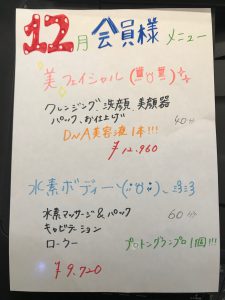 12月 会員様 メニュー
美フェイシャル
クレンジング 洗顔 美顔器
パック、お仕上げ 40分
DNA美容液1本!!!
¥12.960
水素ボディー
水素マッサージ&パック 60分
キャビテーション
ローラー プロトングランプロ1個!!!
¥9.720